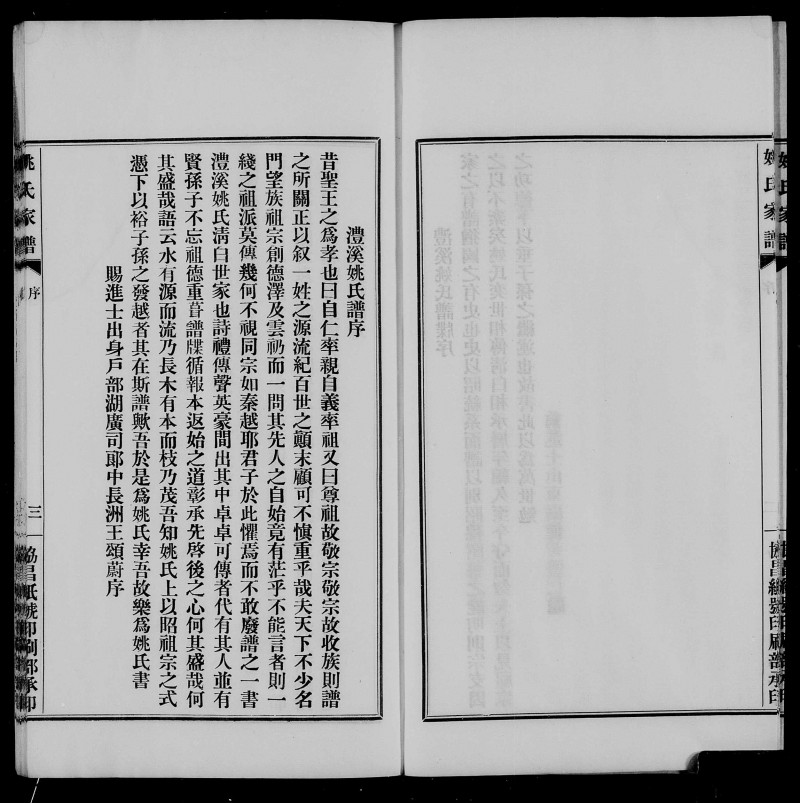 姚氏家譜
序
協昌紙號印刷部承印
澧溪姚氏譜序
昔聖王之為孝也曰自仁率親自義率祖又曰尊祖故敬宗敬宗故收族則譜
之所關正以叙一姓之源流紀百世之顚末顧可不愼重乎哉夫天下不少名
門望族祖宗創德澤及雲礽而一問其先人之自始竟有茫乎不能言者則一
綫之祖派莫傳幾何不視同宗如秦越耶君子於此懼焉而不敢廢譜之一書
澧溪姚氏淸白世家也詩禮傳聲英豪間出其中卓卓可傳者代有其人並有
賢孫子不忘祖德重葺譜牒循報本返始之道彰承先啓後之心何其盛哉何
其盛哉語云水有源而流乃長木有本而枝乃茂吾知姚氏上以昭祖宗之式
憑下以裕子孫之發越者其在斯譜歟吾於是爲姚氏幸吾故樂爲姚氏書
賜進士出身戶部湖廣司郞中長洲王頌蔚序
姚氏家譜
序
三
協昌紙號印刷部承印